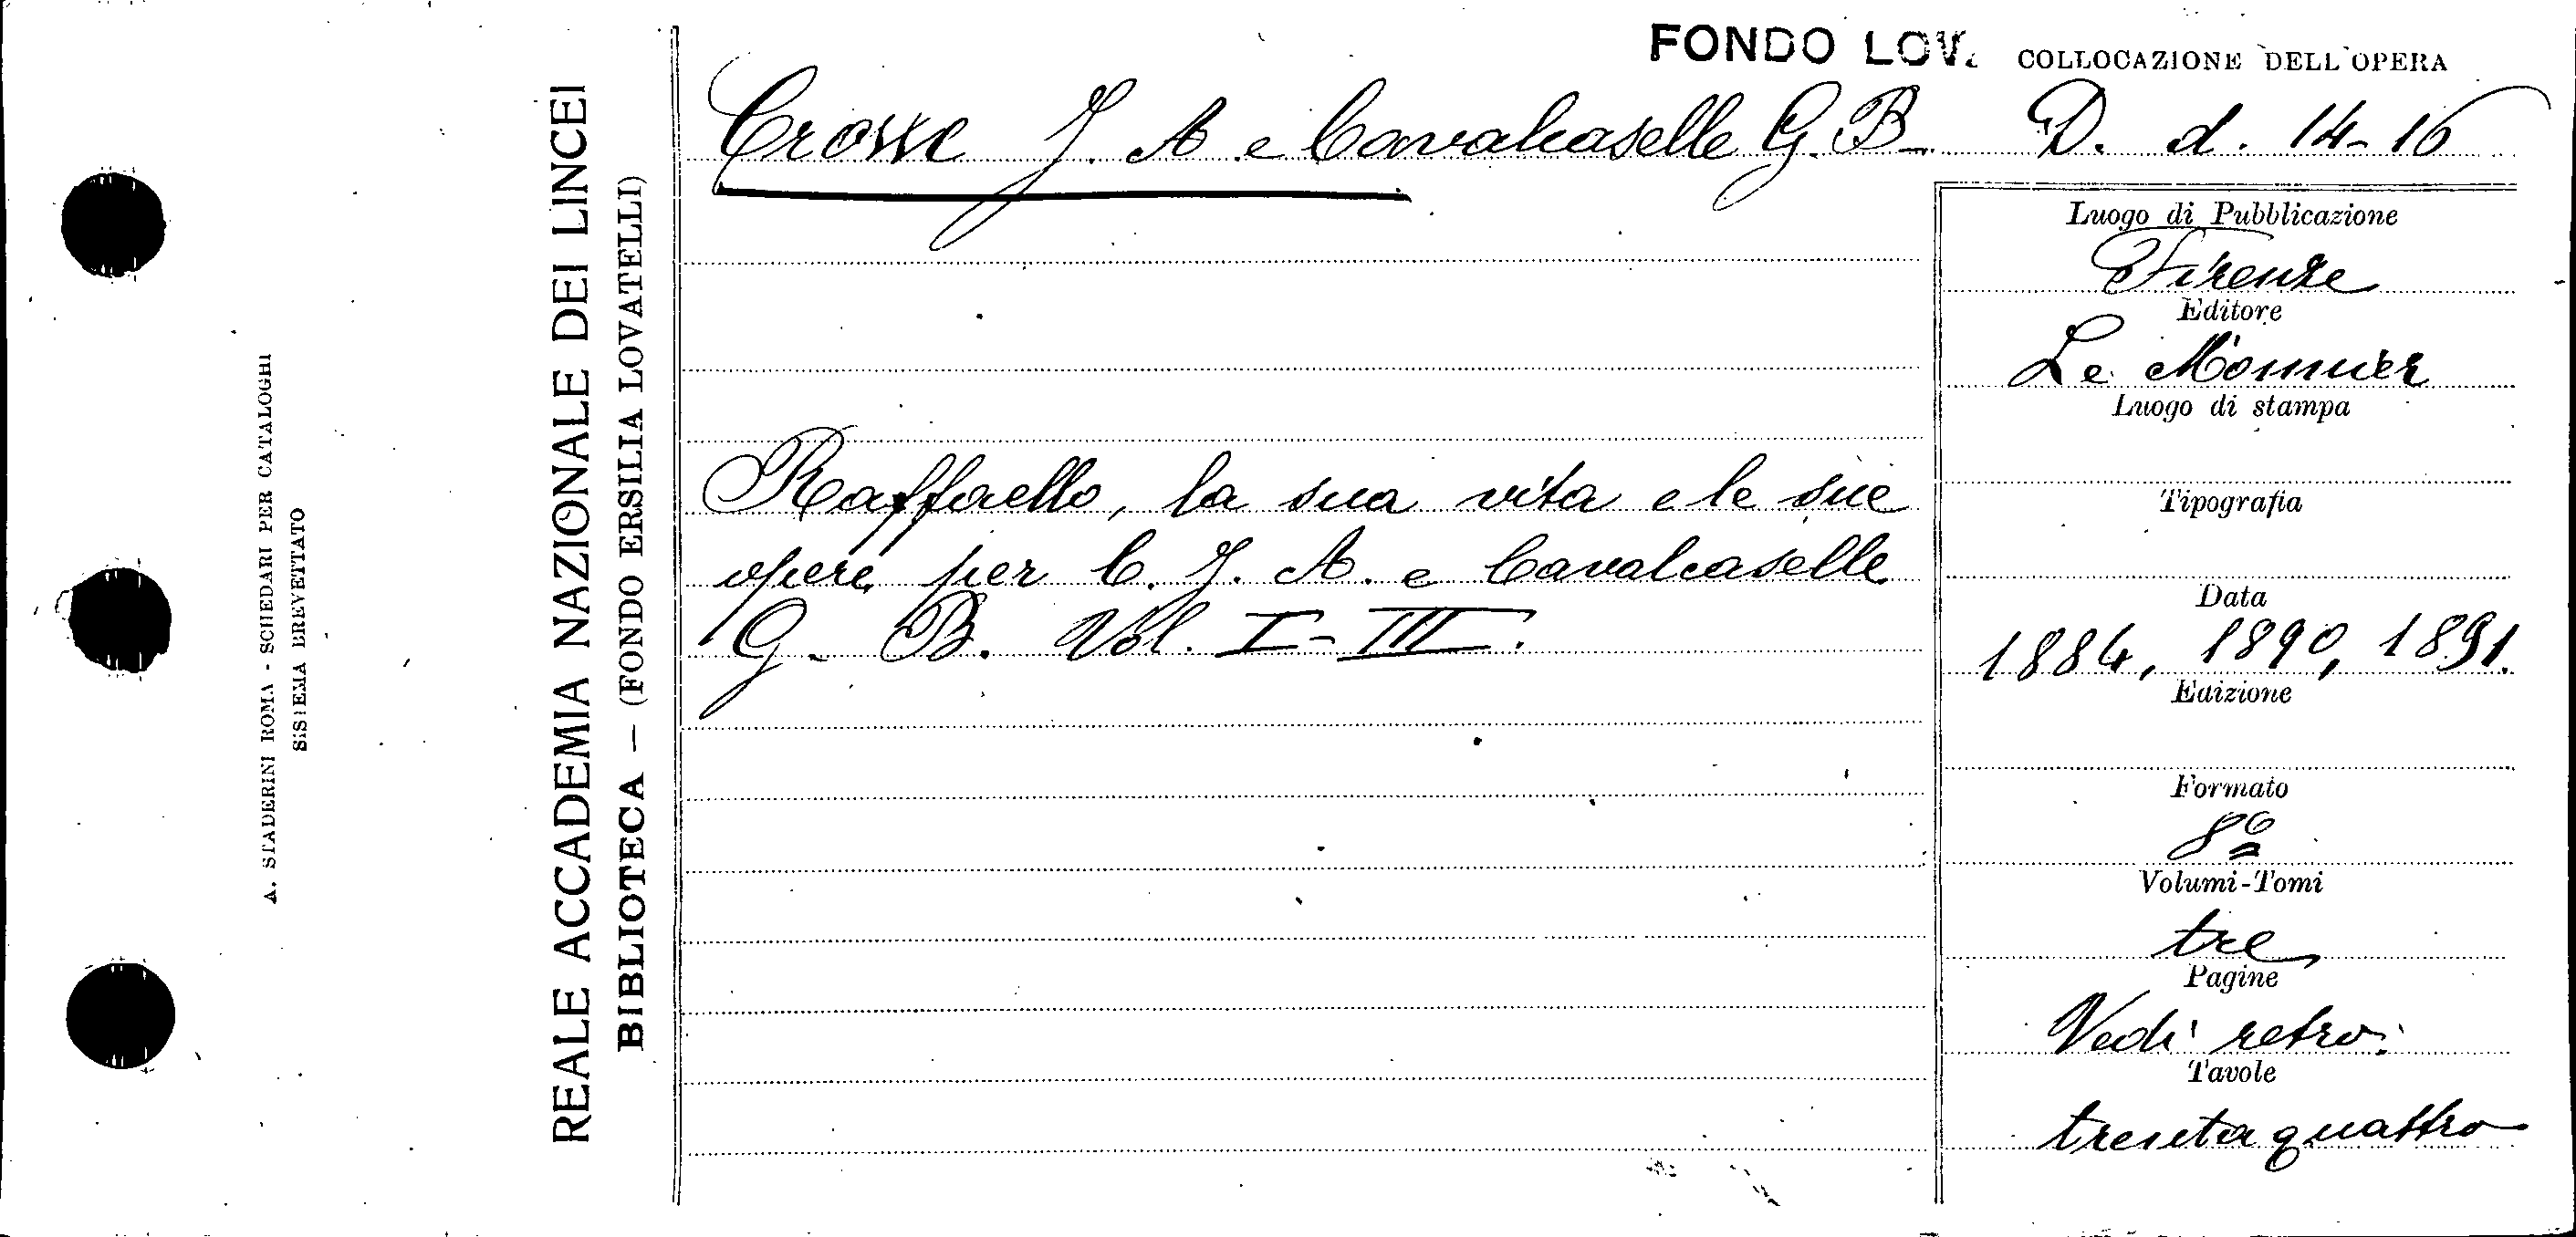 FONDO LOV. COLLOCAZIONE DELL'OPERA
Crowe J. A. e Cavalcaselle G. B. D. d. 14-16
Raffaello, la sua vita e le sue
opere per C. J. A. e Cavalcaselle
G. B. Vol. I-III.
Luogo di Pubblicazione
Firenze
Editore
Le Monnier
Luogo di stampa
Tipografia
Data
1884, 1890, 1891.
Edizione
Formato
8º
Volumi-Tomi
tre
Pagine
Vedi retro.
Tavole
trentaquattro
REALE ACCADEMIA NAZIONALE DEI LINCEI
BIBLIOTECA — (FONDO ERSILIA LOVATELLI)
A. STADERINI ROMA - SCHEDARI PER CATALOGHI
SISTEMA BREVETTATO